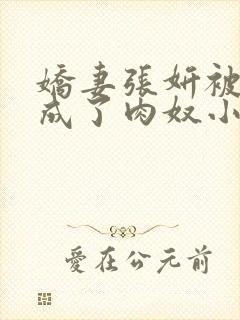 嬌妻張妍被
成了肉奴小
愛在公元前